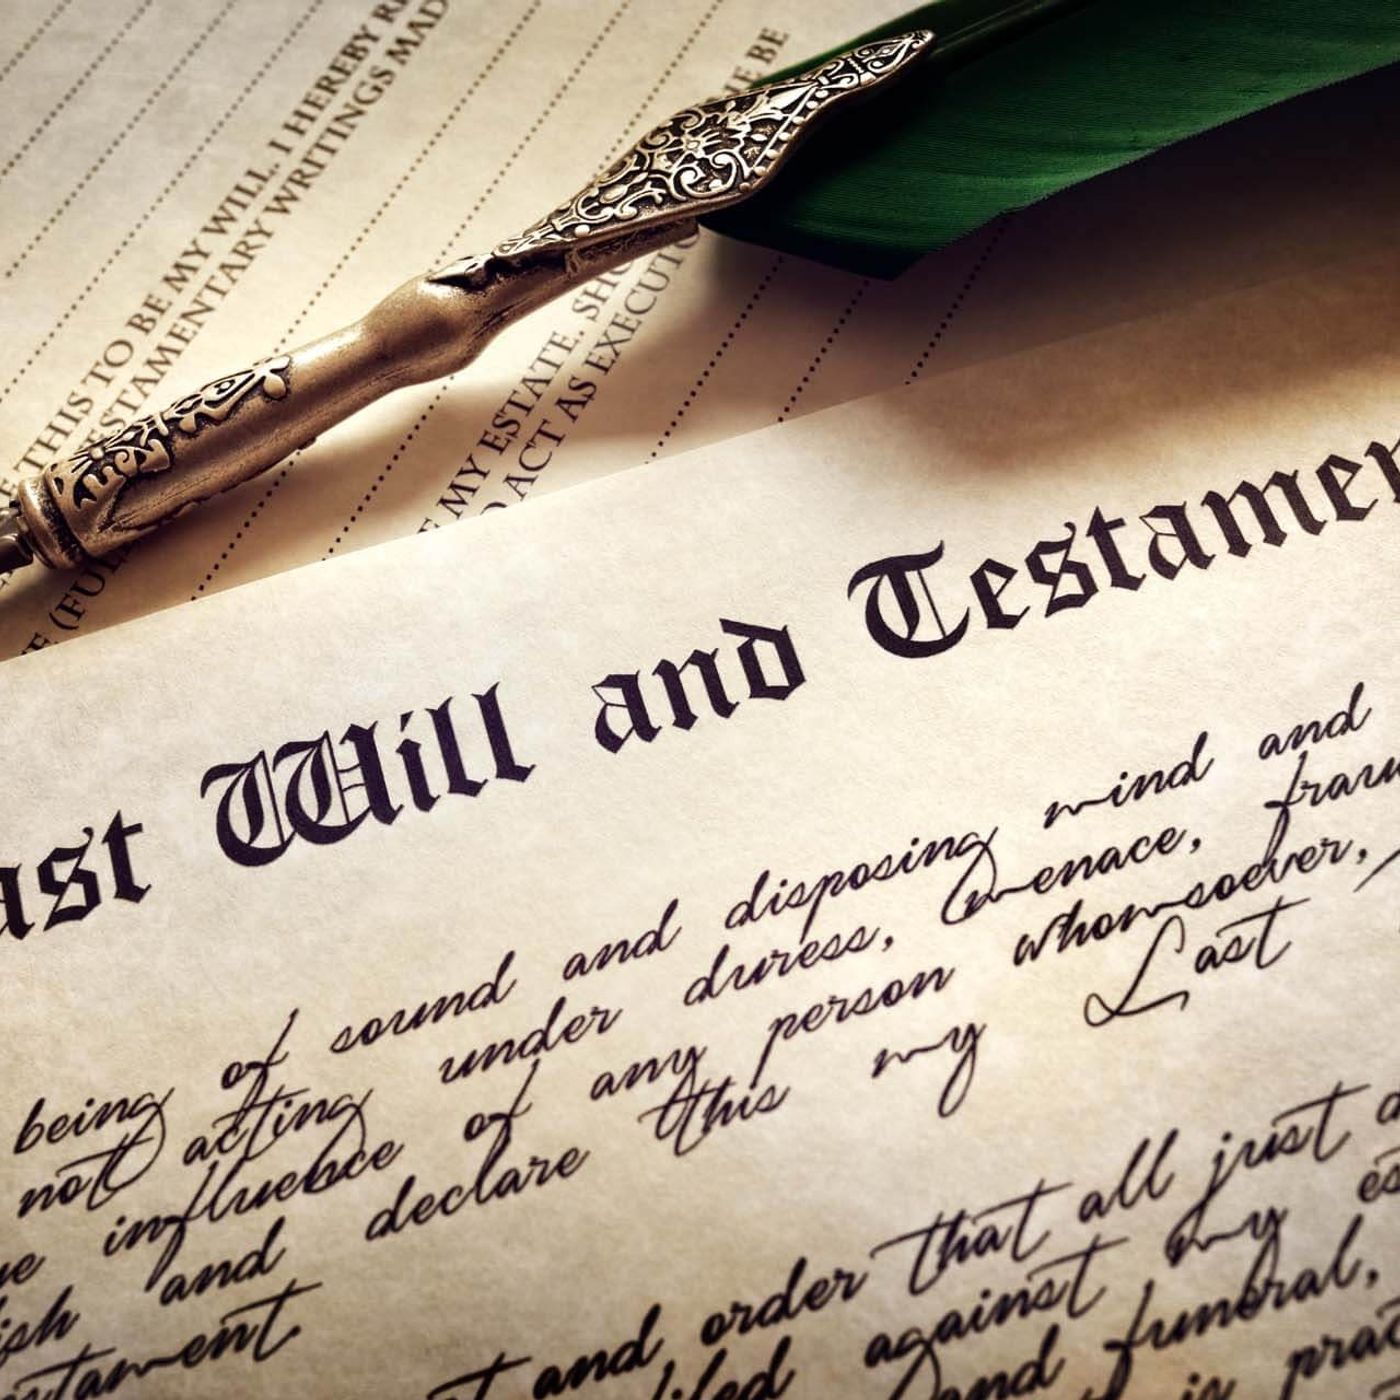 THIS TO BE MY WILL. I HEREBY
TESTAMENTARY WRITINGS MAD
MY ESTATE. SHO
ACT AS EXECUTO
BE
(FUL
ast Will and Testamen
being of sound and disposing mind and
not acting under duress, menace, frau
influence of any person whomsoever,
ish and declare this my Last
stament
t and order that all just
filed against my es
and funeral,
is prac